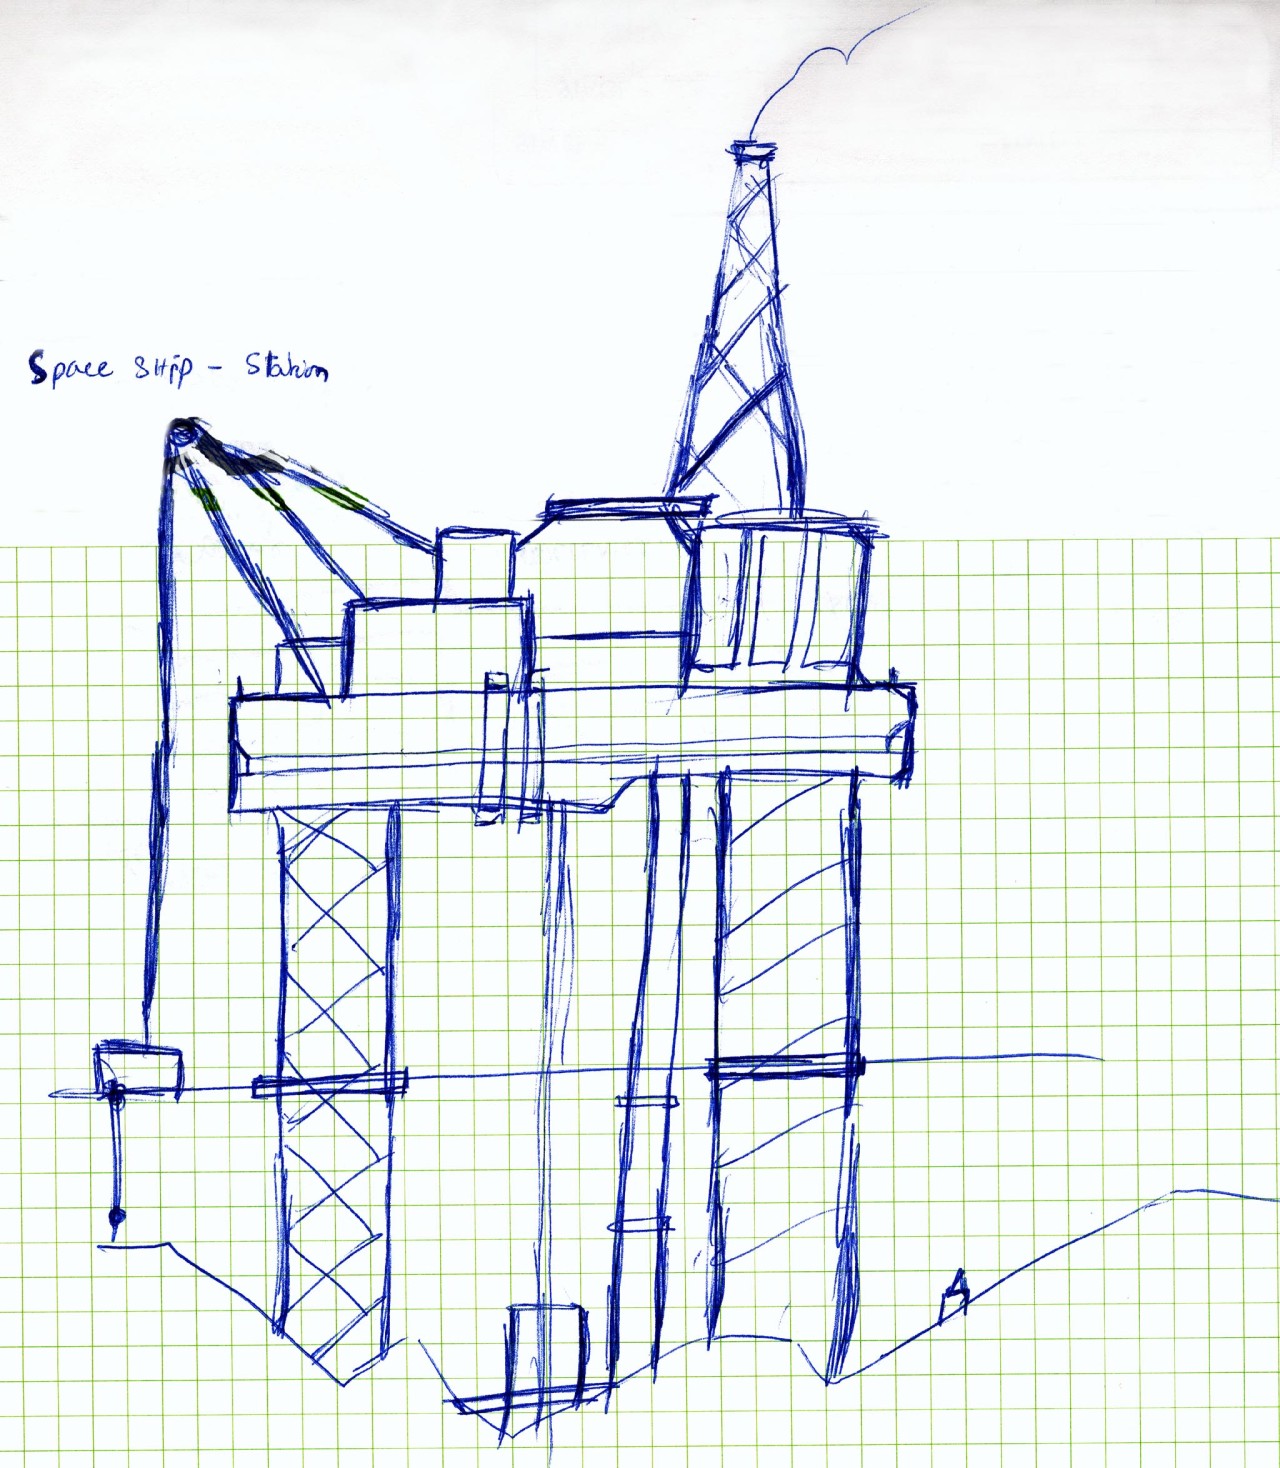 Space SHip - Station